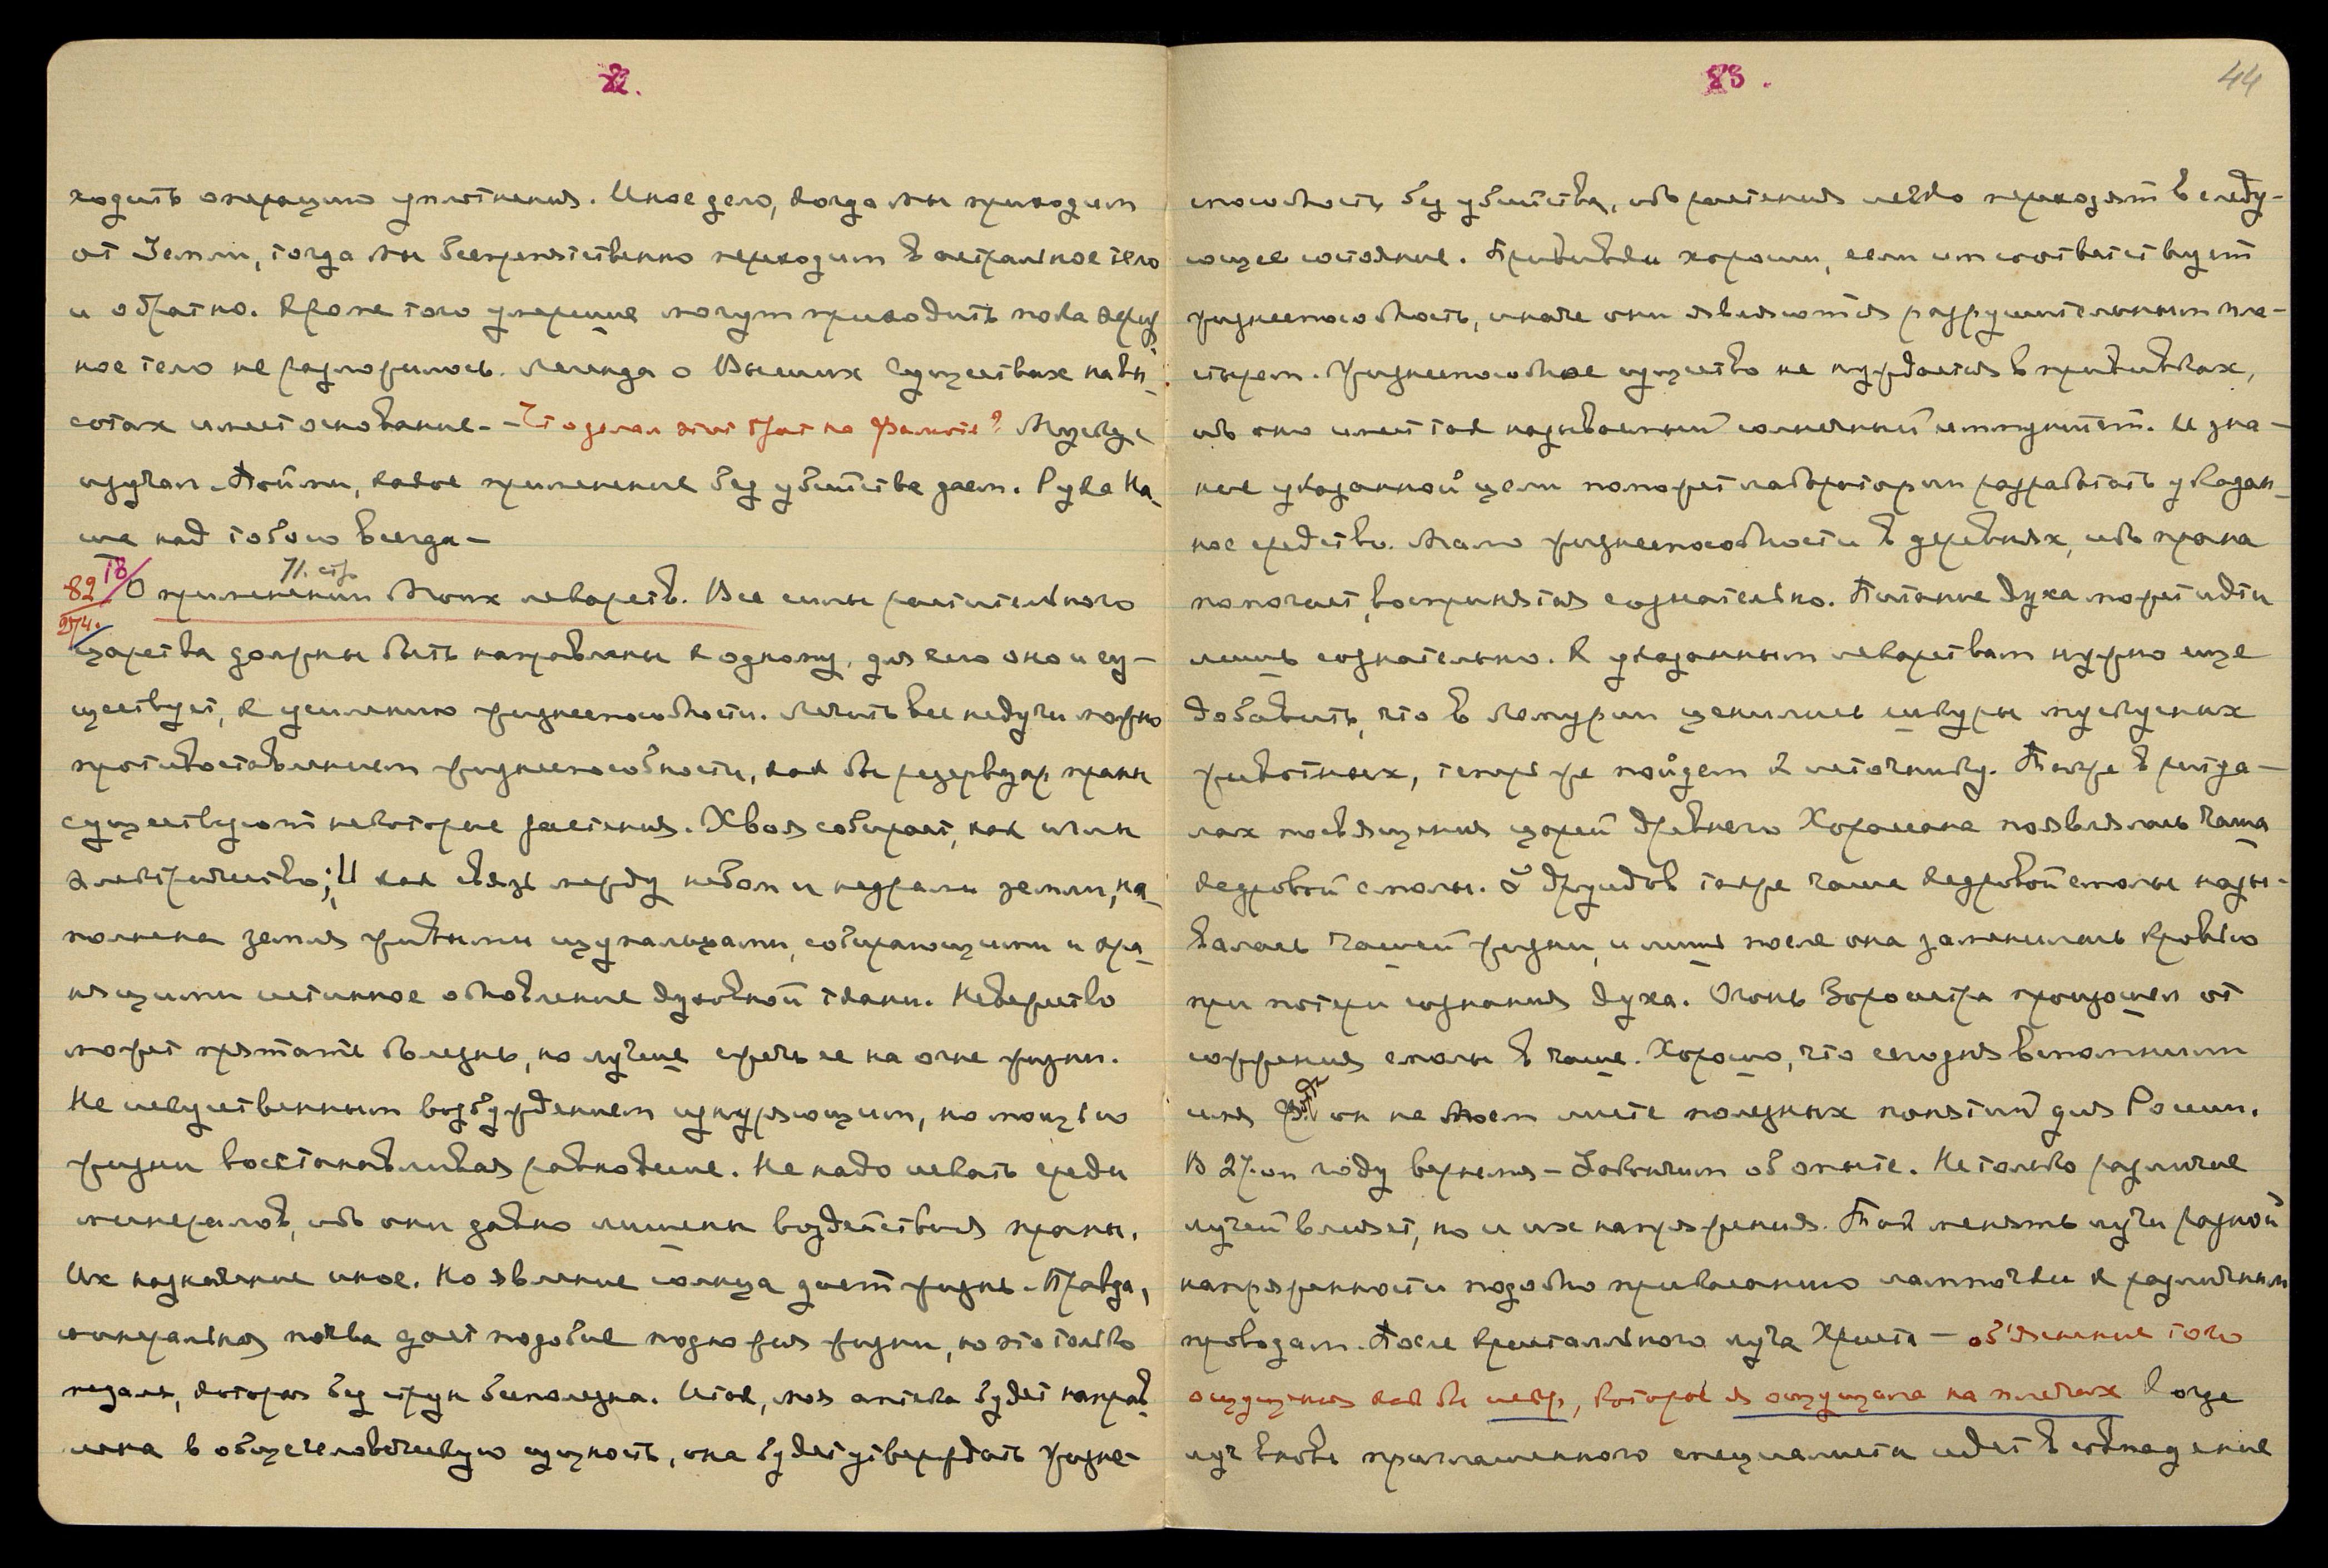 82.
ходить операцию уплотнения. Иное дело, когда мы приходим
от Земли, тогда мы беспрепятственно переходим в астральное тело
и обратно. Кроме того умершие могут приходить пока
ное тело не разложилось. Легенда о Высших Существах на вы-
сотах имеет основание. - Что делал этот брат на
изучал. Пойми, какое применение без убийства даем. Рука На-
ша над тобою всегда —
71. стр
82 О применении Моих лекарств. Все силы растительного
царства должны быть направлены к одному, для чего оно и су-
ществует, к усилению жизнеспособности. Лечить все недуги можно
противоставлением жизнеспособности, как бы резервуар праны
существуют некоторые растения. Хвоя собирает, как иглы
электричество; И как связь между небом и недрами земли, на-
полнена земля живыми щупальцами, собирающими и хра-
нящими истинное обновление духовной ткани. Невежество
может прятать болезнь, но лучше сжечь ее на огне жизни.
Не искусственным возбуждением изнуряющим, но мощью
жизни восстанавливая равновесие. Не надо искать среди
минералов, ибо они давно лишены воздействия праны.
Их назначение иное. Но явление солнца дает жизнь. Правда,
минеральная почва дает подобие подножия жизни, но это только
педаль, которая без струн бесполезна. Итак, моя аптека будет направ-
лена в общечеловеческую сущность, она будет утверждать жизне-
83.
44
способность без убийства, ибо растения легко переходят в следу-
ющее состояние. Прививки хороши, если им соответствует
жизнеспособность, иначе они являются разрушительным пла-
стырем. Жизнеспособное существо не нуждается в прививках,
ибо оно имеет так называемый солнечный иммунитет. И зна-
ние указанной цели поможет лаборатории разработать указан-
ное средство. Мало жизнеспособности в деревнях, ибо прана
помогает, воспринятая сознательно. Питание духа может идти
лишь сознательно. К указанным лекарствам нужно еще
добавить, что в Лемурии ценились шкуры мускусных
животных, теперь же пойдем к источнику. Также в ритуа-
лах посвящения царей древнего Хорасана появлялась чаша
кедровой смолы. У друидов также чаша кедровой смолы назы-
валась чашей жизни, и лишь после она заменилась кровью
при потери сознания духа. Огонь Зороастра произошел от
сожжения смолы в чаше. Хорошо, что сегодня вспомним
имя он не в моем листе полезных понятий для России.
В 27-ом году вернемся — Закончим об опыте. Не только различие
лучей влияет, но и их напряжения. Так менять лучи разной
напряженности подобно привязанию лампочки к различным
проводам. После кристального луча Христа — об'яснение того
ощущения как бы искр, которое я ощущала на плечах когда
луч вновь приглашенного специалиста идет в совпадение